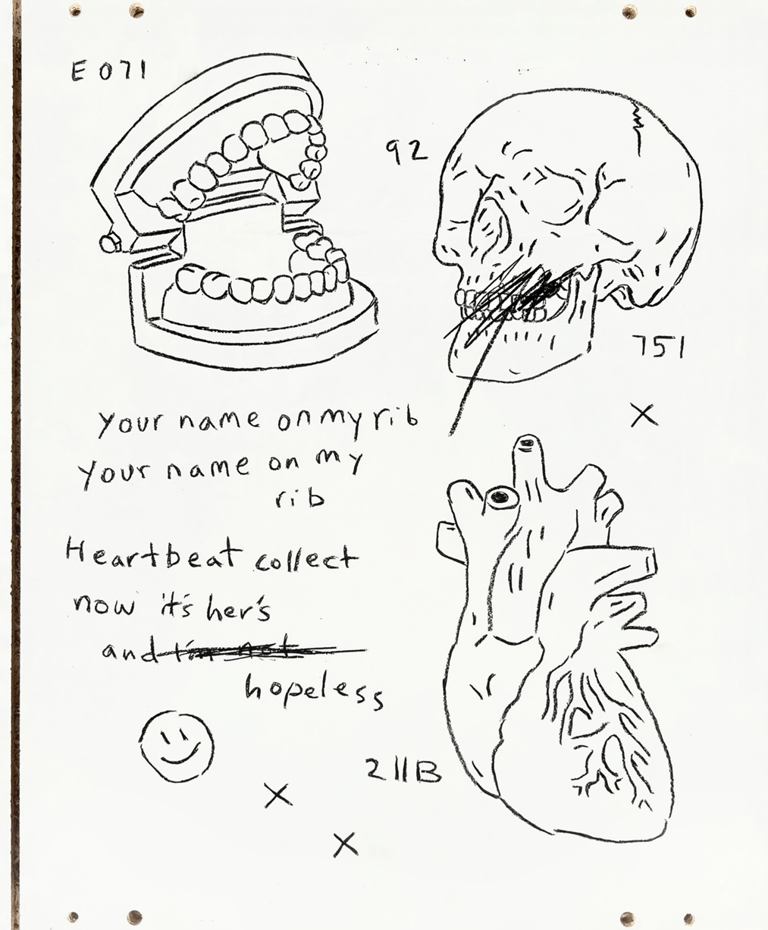 E 071
92
751
X
your name on my rib
your name on my
rib
Heartbeat collect
now it's her's
and I'm not
hopeless
211B
X
X